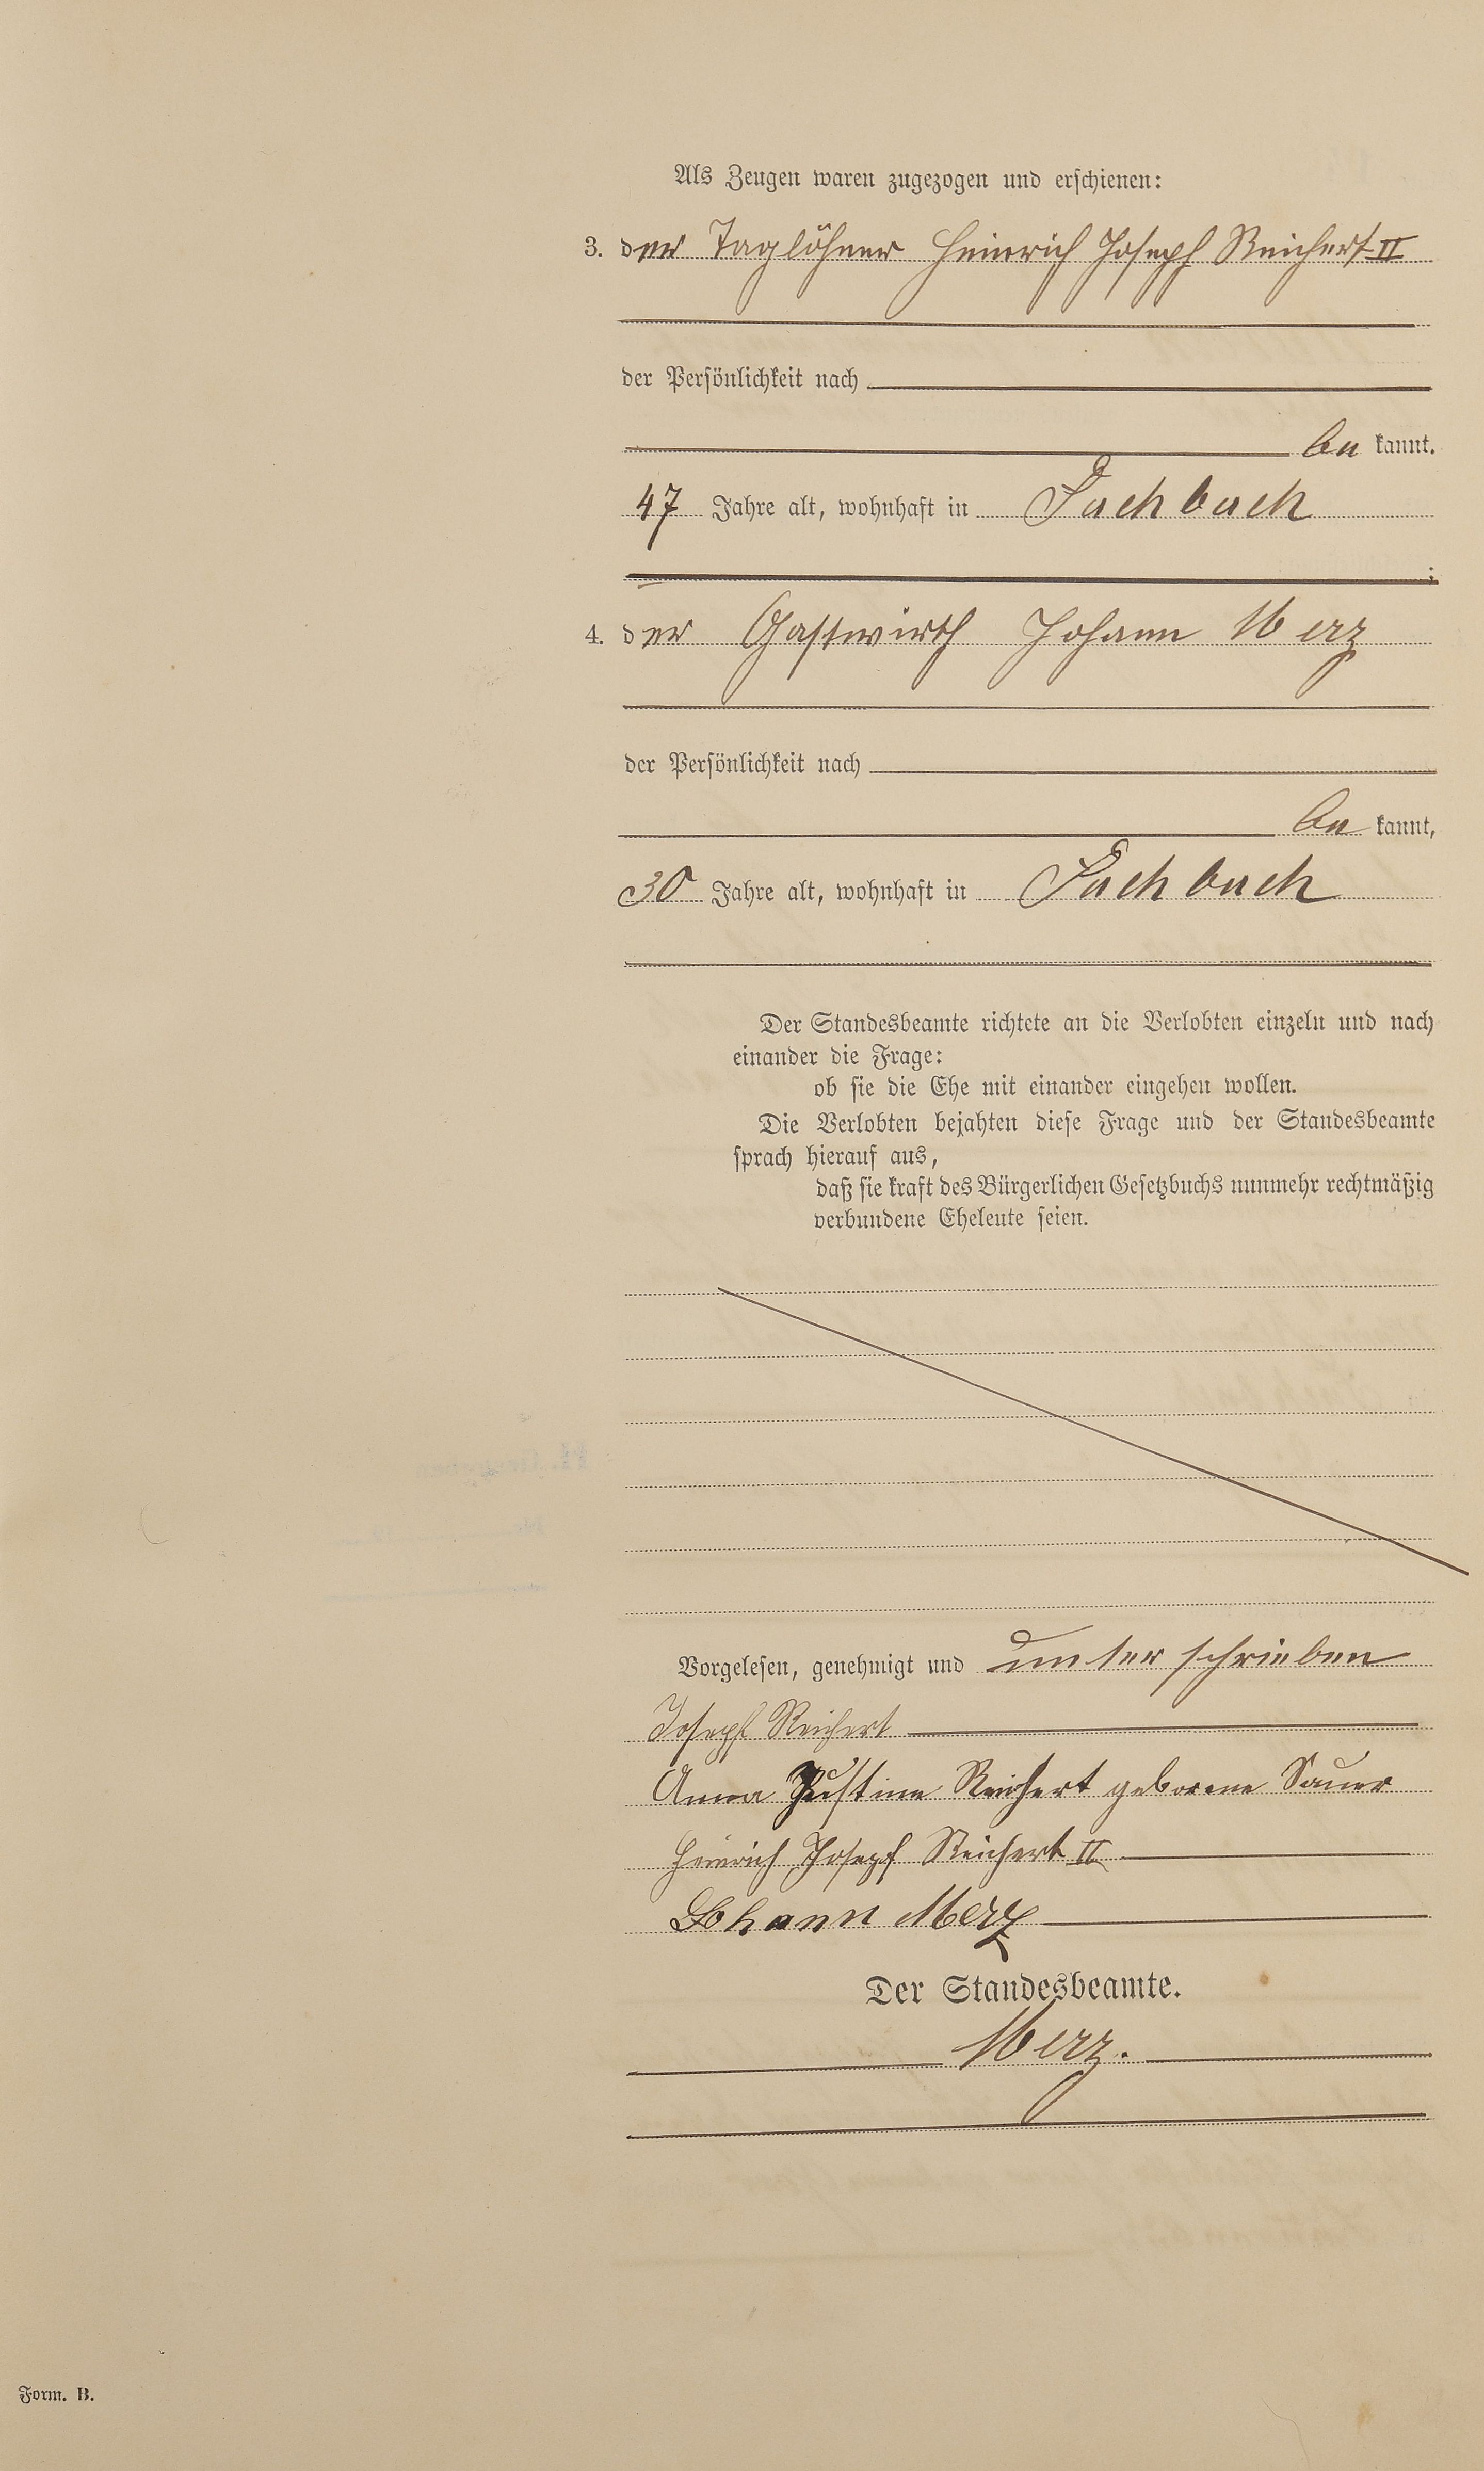 Als Zeugen waren zugezogen und erschienen:
3. der Taglöhner Heinrich Joseph Reichert II
der Persönlichkeit nach
be kannt.
47 Jahre alt, wohnhaft in Fachbach
;
4. der Gastwirth Johann Merz
der Persönlichkeit nach
be kannt,
30 Jahre alt, wohnhaft in Fachbach
Der Standesbeamte richtete an die Verlobten einzeln und nach
einander die Frage:
ob sie die Ehe mit einander eingehen wollen.
Die Verlobten bejahten diese Frage und der Standesbeamte
sprach hierauf aus,
daß sie kraft des Bürgerlichen Gesetzbuchs nunmehr rechtmäßig
verbundene Eheleute seien.
Vorgelesen, genehmigt und unterschrieben
Joseph Reichert
Anna Justine Reichert geborene Sauer
Heinrich Joseph Reichert II
Johann Merz
Der Standesbeamte.
Merz.
Form. B.